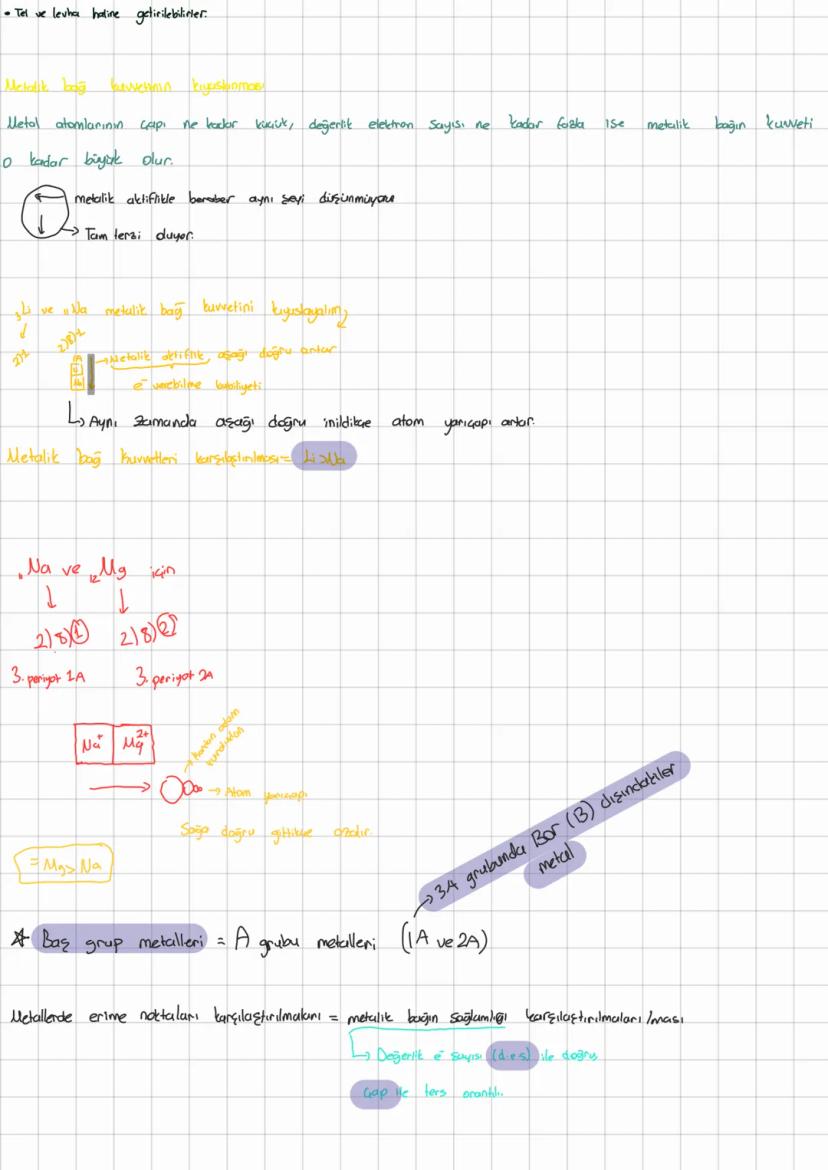 • Tel ve levha haline getirilebilirler.
Metalik bağ kuvvetinin kıyaslanması
Metal atomlarının çapı ne kadar küçük, değerlik elektron sayısı ne kadar fazla ise metalik bağın kuvveti
o kadar büyük olur.
metalik aktiflikle beraber aynı şeyi düşünmüyoru
Tam tersi oluyor.
₃Li ve ₁₁Na metalik bağ kuvvetini kıyaslayalım,
2)1 2)8)1
1A
Li
Na
→ Metalik aktiflik, aşağı doğru artar
e⁻ verebilme kabiliyeti
↳ Aynı zamanda aşağı doğru inildikçe atom yarıçapı artar.
Metalik bağ kuvvetleri karşılaştırılması = Li>Na
₁₁Na ve ₁₂Mg için
2)8)1 2)8)2
3. periyot 1A 3. periyot 2A
Na⁺ Mg²⁺
→ Atom yarıçapı
Sağa doğru gittikçe azalır.
= Mg> Na
→ 3A grubunda Bor (B) dışındakiler
metal
☆ Baş grup metalleri = A grubu metalleri (1A ve 2A)
Metallerde erime noktaları karşılaştırılmaları = metalik bağın sağlamlığı karşılaştırılmaları/ması
↳ Değerlik e⁻ sayısı (d.e.s) ile doğru
Çap ile ters orantılı.